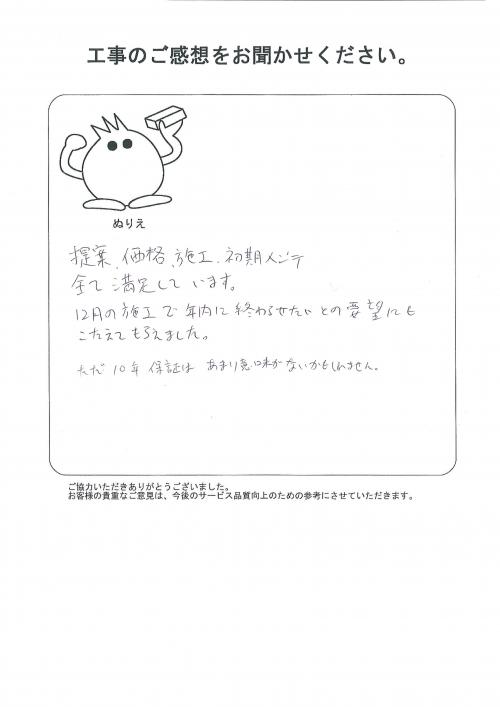 工事のご感想をお聞かせください。
ぬりえ
提案、価格、施工、初期メンテ
全て満足しています。
12月の施工で年内に終わらせたいとの要望にも
こたえてもらえました。
ただ10年保証はあまり意味がないかもしれません。
ご協力いただきありがとうございました。
お客様の貴重なご意見は、今後のサービス品質向上のための参考にさせていただきます。